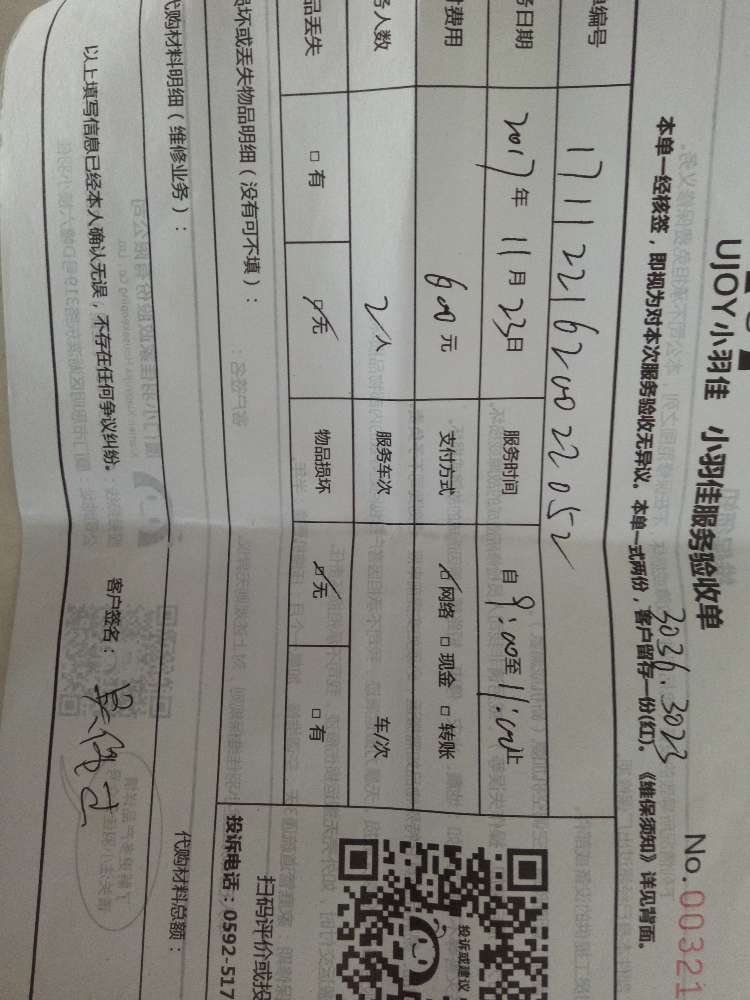 UJOY小羽佳 小羽佳服务验收单
3036. 3023
No.00321
本单一经核签，即视为对本次服务验收无异议。本单一式两份，客户留存一份(红)。《维保须知》详见背面。
单编号 171122162002052
务日期 2017年11月23日 服务时间 自9:00至11:00止
付费用 600元 支付方式 网络 □ 现金 □ 转账
务人数 2人 服务车次 车/次
品丢失 □ 有 无 物品损坏 无 □ 有
损坏或丢失物品明细（没有可不填）：
投诉或建议
扫码评价或投
投诉电话：0592-517
代购材料明细（维修业务）： 代购材料总额：
以上填写信息已经本人确认无误，不存在任何争议纠纷。 客户签名：